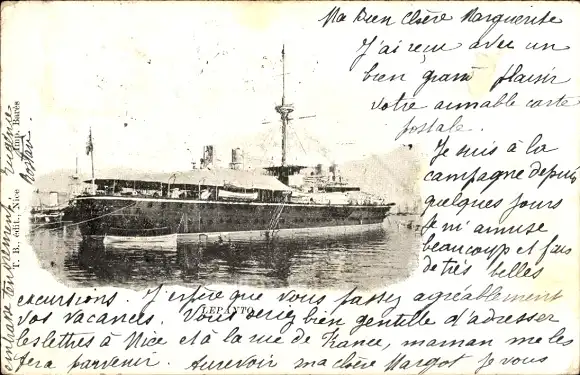 Ma Bien chère Marguerite
J'ai reçu avec un
bien grand plaisir
votre aimable carte
postale.
Je suis à la
campagne depuis
quelques jours
Je m'amuse
beaucoup et fais
de très belles
excursions. J'espère que vous passez agréablement
vos vacances. Vous seriez bien gentille d'adresser
les lettres à Nice et à la rue de France, maman me les
fera parvenir. Aurevoir ma chère Margot je vous
embrasse tendrement Eugénie
LEPANTO
T. B. édit., Nice Amp. Barès